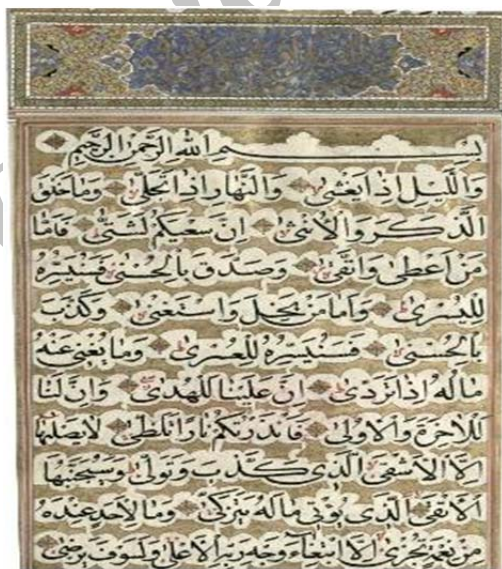 بِسْمِ اللهِ الرَّحْمٰنِ الرَّحِيمِ
وَالَّيْلِ اِذَا يَغْشٰى وَالنَّهَارِ اِذَا تَجَلّٰى وَمَا خَلَقَ
الذَّكَرَ وَالْاُنْثٰى اِنَّ سَعْيَكُمْ لَشَتّٰى فَاَمَّا
مَنْ اَعْطٰى وَاتَّقٰى وَصَدَّقَ بِالْحُسْنٰى فَسَنُيَسِّرُهُ
لِلْيُسْرٰى وَاَمَّا مَنْ بَخِلَ وَاسْتَغْنٰى وَكَذَّبَ
بِالْحُسْنٰى فَسَنُيَسِّرُهُ لِلْعُسْرٰى وَمَا يُغْنِي عَنْهُ
مَالُهُ اِذَا تَرَدّٰى اِنَّ عَلَيْنَا لَلْهُدٰى وَاِنَّ لَنَا
لَلْاٰخِرَةَ وَالْاُولٰى فَاَنْذَرْتُكُمْ نَارًا تَلَظّٰى لَا يَصْلٰيهَا
اِلَّا الْاَشْقَى الَّذِي كَذَّبَ وَتَوَلّٰى وَسَيُجَنَّبُهَا
الْاَتْقَى الَّذِي يُؤْتِي مَالَهُ يَتَزَكّٰى وَمَا لِاَحَدٍ عِنْدَهُ
مِنْ نِعْمَةٍ تُجْزٰى اِلَّا ابْتِغَاءَ وَجْهِ رَبِّهِ الْاَعْلٰى وَلَسَوْفَ يَرْضٰى